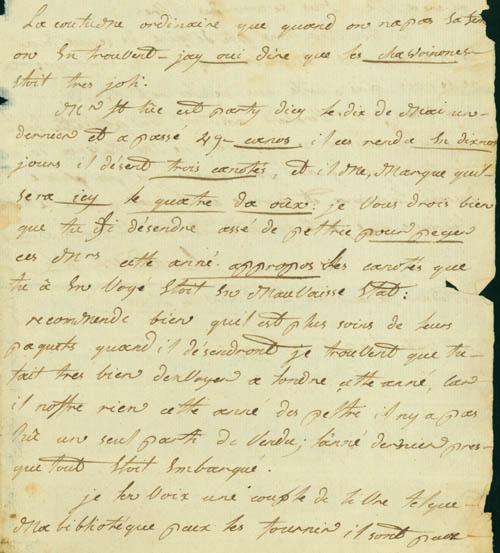 La coutudne ordinaire que quand on na pas sa
on En trouvent - jay oui dire que les chavoinones
Etoit tres joli.
Mr St Luc est party dicy le dix de Mai
dernier et a passé 49 canos, il ces rendu En dix nof
jours il désent trois canotés, et il Me Marque qu'il
sera icy le quatre da oûx; je vous drois bien
que tu fi désendre assé de peltrie pour peyer
ces Mrs cette anné. appropos des canotés que
tu à En voyé Etoit En Mauvaisse Etat:
recomende bien qu'il est plus soins de leurs
paquets quand il désendront je trouvent que tu
fait tres bien denvoyer a londre cette anné, Car
il noffre rien cette anné des peltri il ny a pas
Eû un seul parti de Vendu; l'anné dernier pres-
que tout Etoit Embarqué.
je En Voix une couple de livre telque
Ma bibliotéque peux les fournir il sont peux